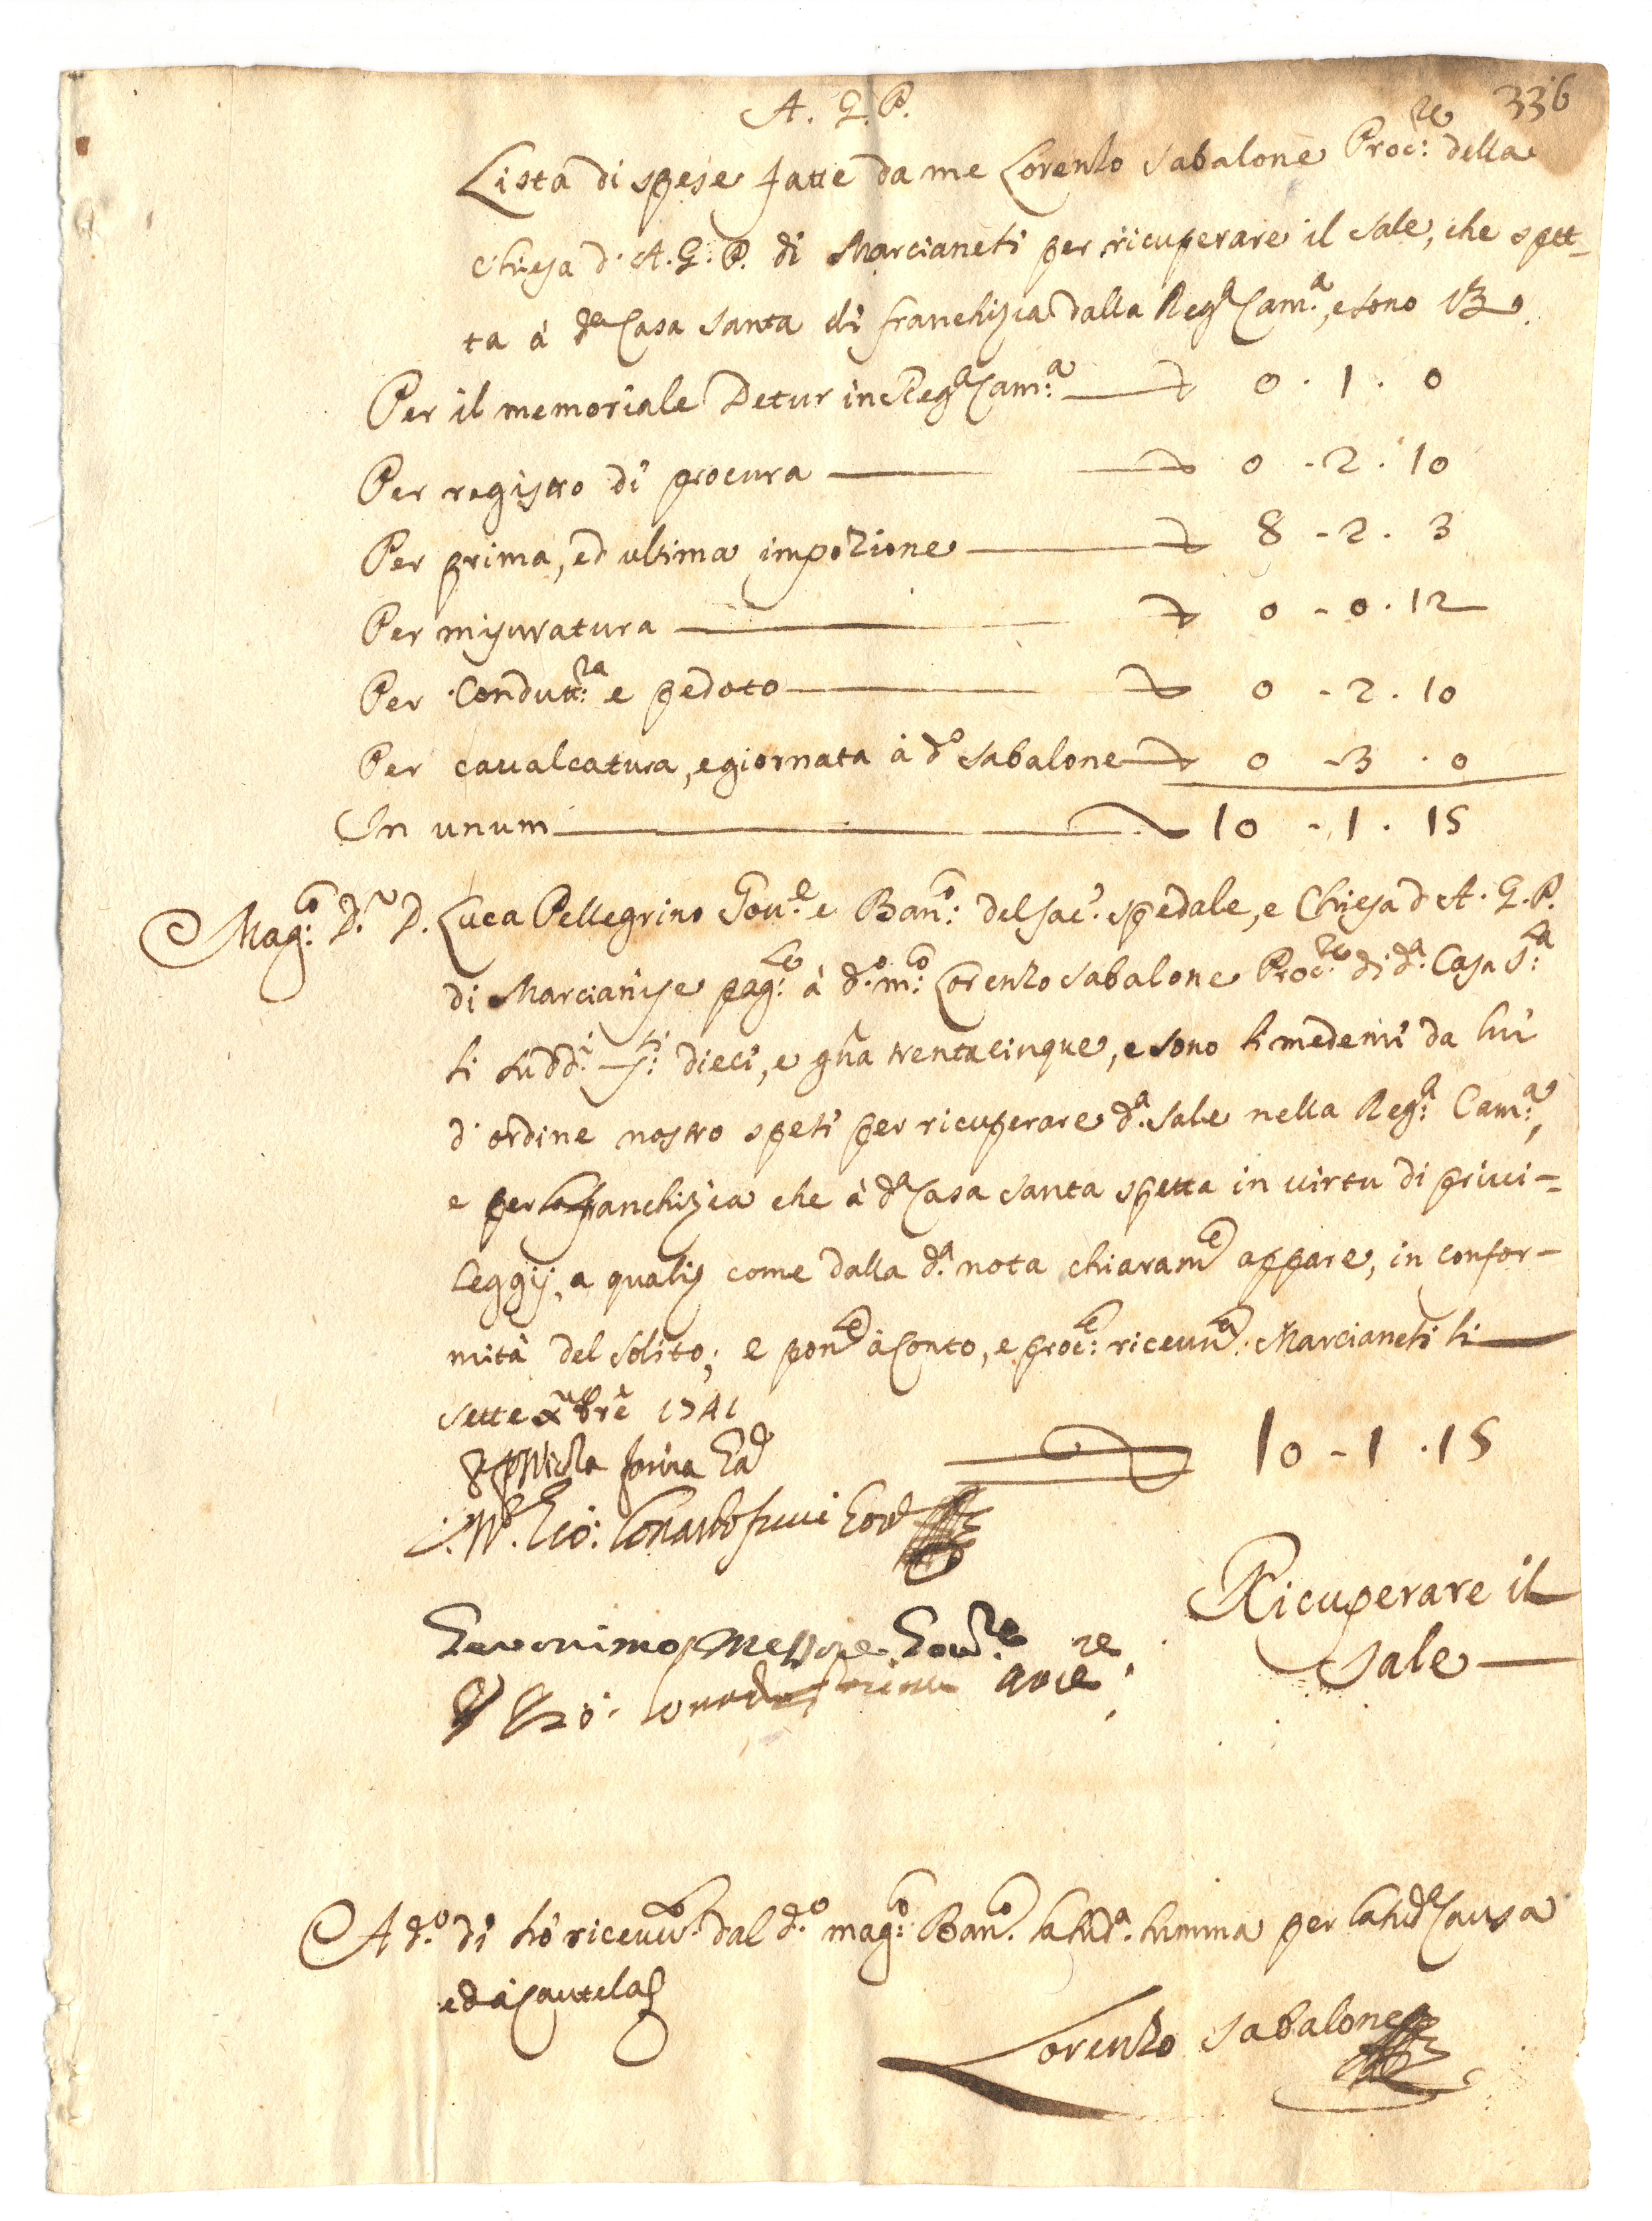 336
A. G. P.
Lista di spese fatte da me Lorenzo Sabalone Proc:re della
Chiesa d' A. G. P. di Marcianesi per ricuperare il Sale, che spet-
ta à d.a Casa Santa di franchizia dalla Reg.a Cam.a, e sono
Per il memoriale Detur in Reg.a Cam:a 0 . 1 . 0
Per registro di procura 0 - 2 . 10
Per prima, ed ultima impozione 8 - 2 . 3
Per misuratura 0 - 0 . 12
Per Condutt:ra e pedoto 0 - 2 . 10
Per caualcatura, e giornata à d.o Sabalone 0 - 3 . 0
In unum 10 - 1 . 15
Mag:co D.r D. Luca Pellegrino Gou:e e Ban:co del sac. spedale, e Chiesa d' A. G. P.
di Marcianise pag:le à d.o m:co Lorenzo Sabalone Proc:re di d.a Casa S:ta
li sudd.i dieci, e gna trentacinque, e sono li medemi da lui
d' ordine nostro spesi per ricuperare d.a Sale nella Reg:a Cam:a,
e per la franchizia che à d.a Casa Santa spetta in uirtu di priui-
leggij, a qualis come dalla d.a nota chiaram.e appare, in confor-
mità del solito; e pon.le à Conto, e proc: riceuu.a. Marcianesi li
sette Xbre 1741
10 - 1 . 15
Geronimo Messore Gou:re
Gio:
Ricuperare il
Sale
A d.o di hò riceuu.to dal d.o mag:co Ban.co la sud.a summa per la sud.a Causa
ed à Cautela
Lorenzo Sabalone